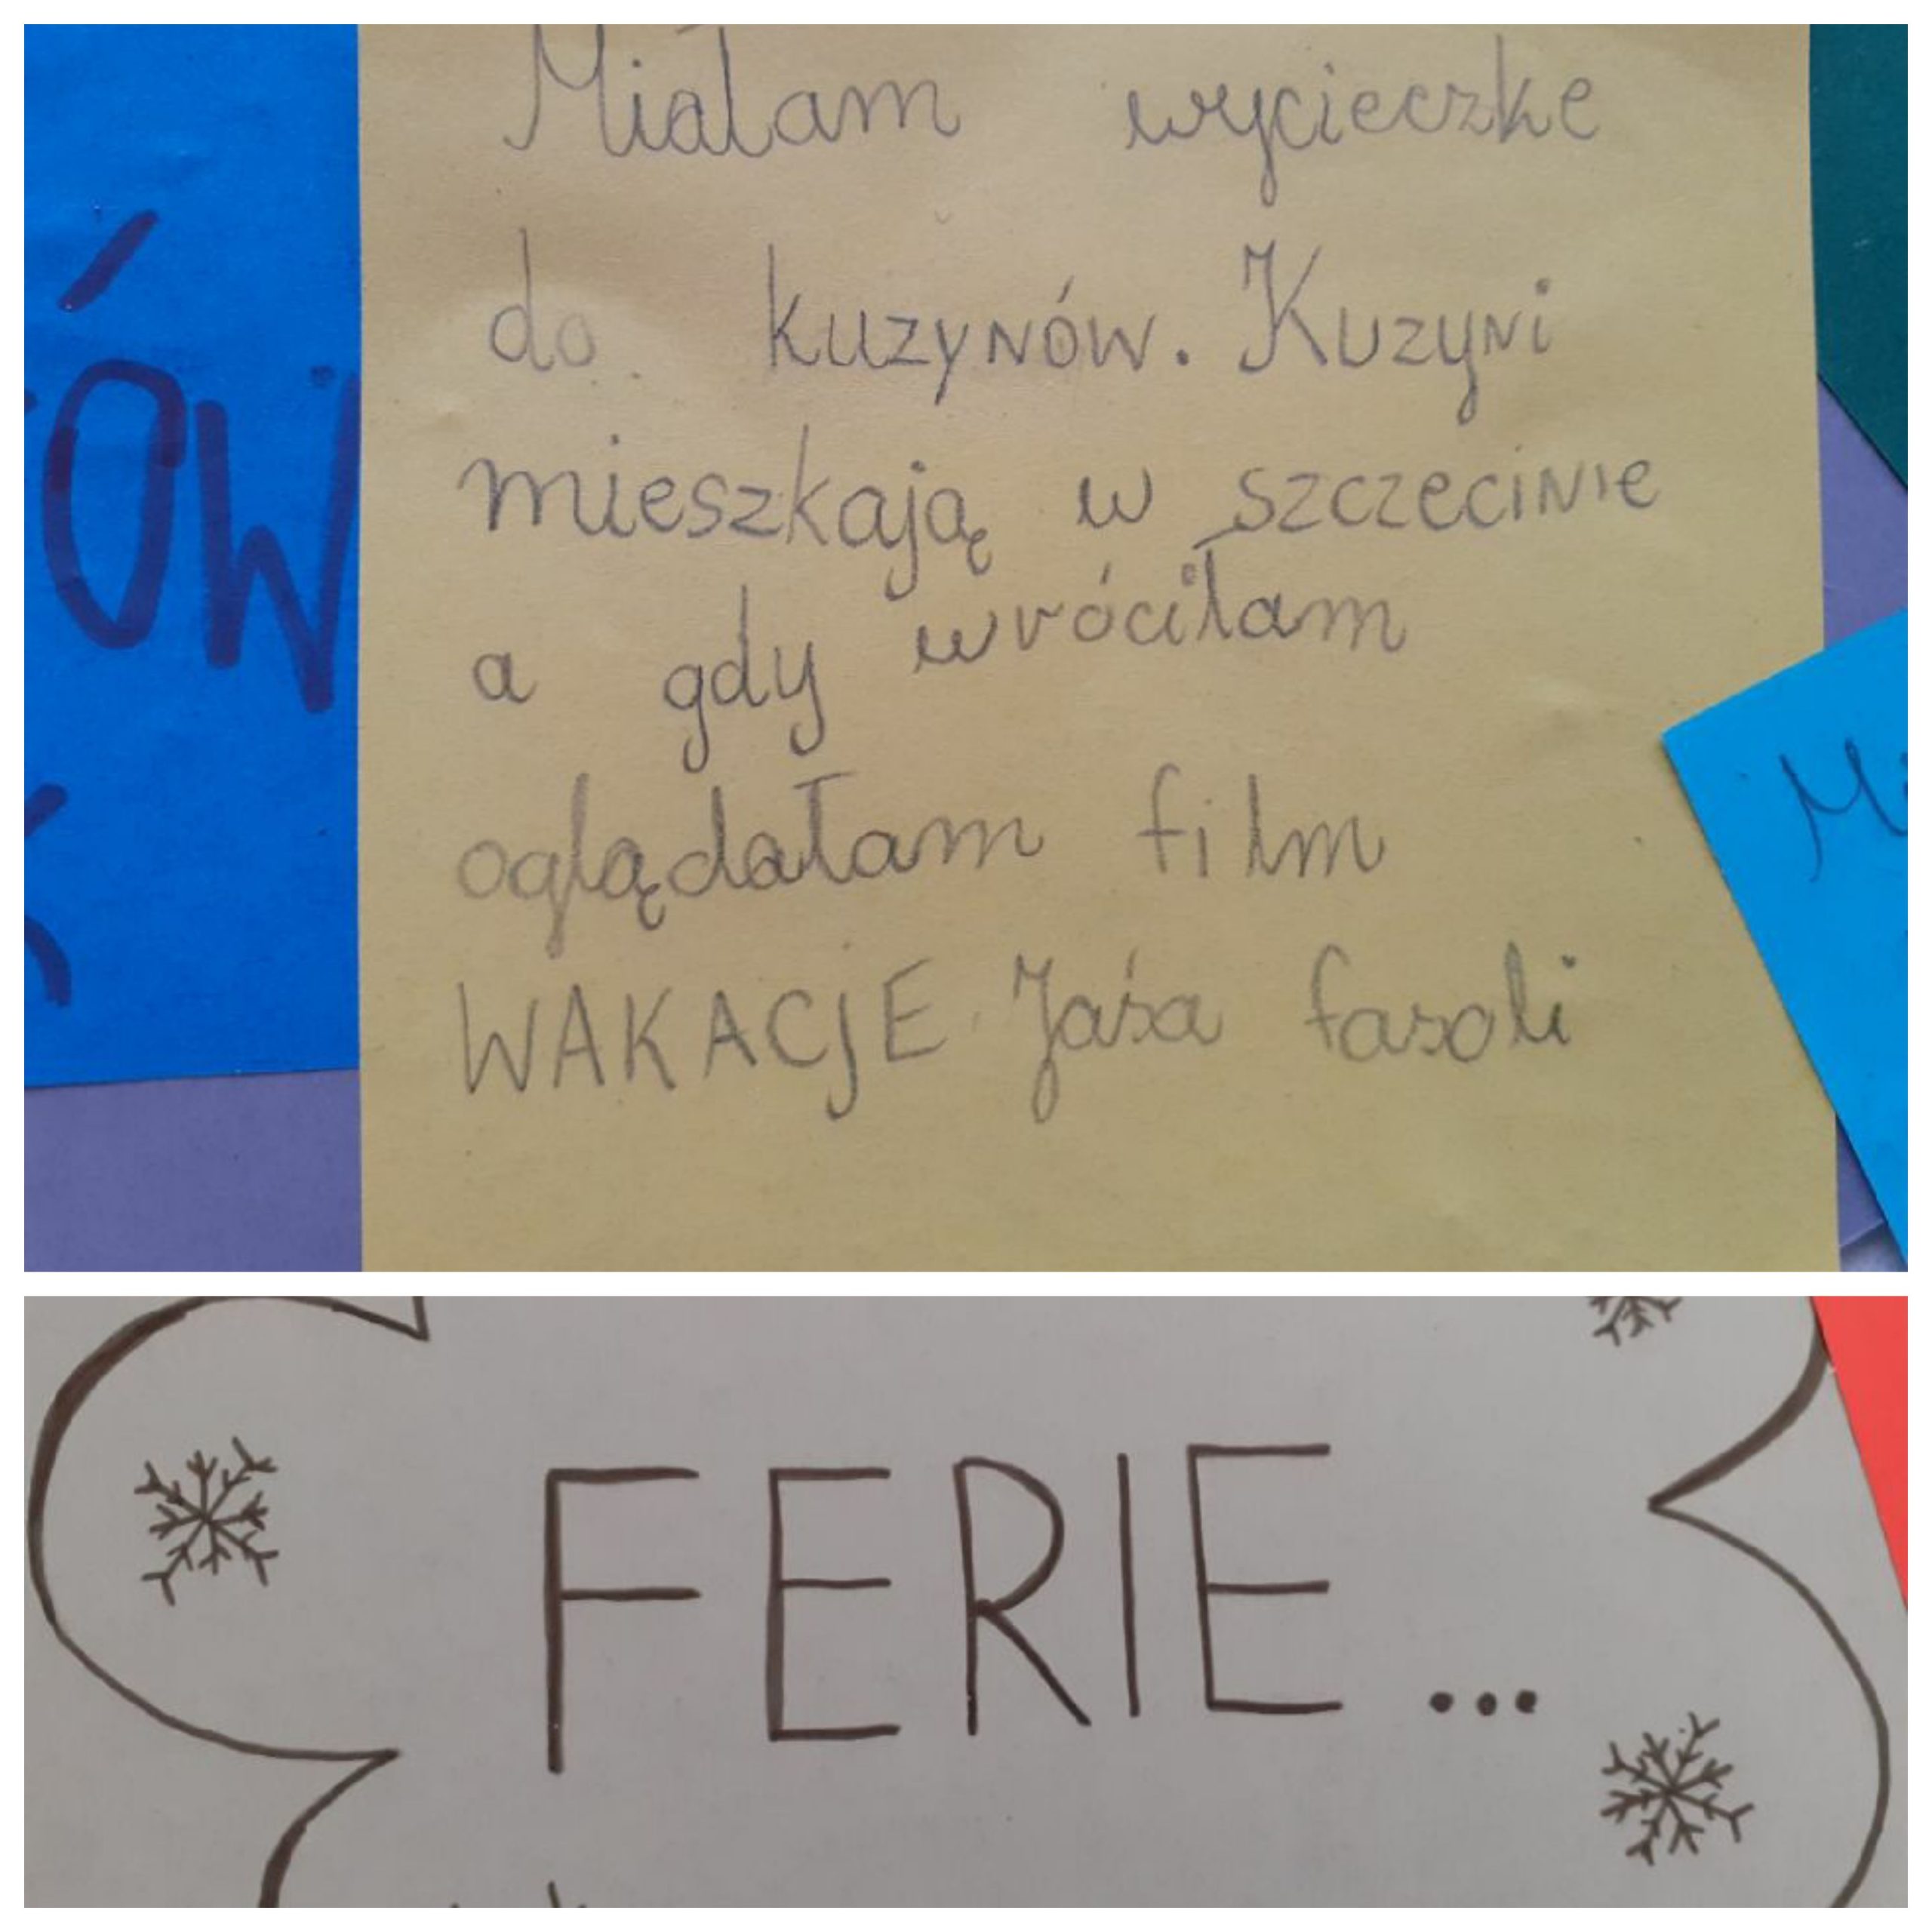 Miałam wycieczke
do kuzynów. Kuzyni
mieszkają w szczecinie
a gdy wróciłam
oglądałam film
WAKACJE Jaśa fasoli
ÓW
Mi
FERIE...